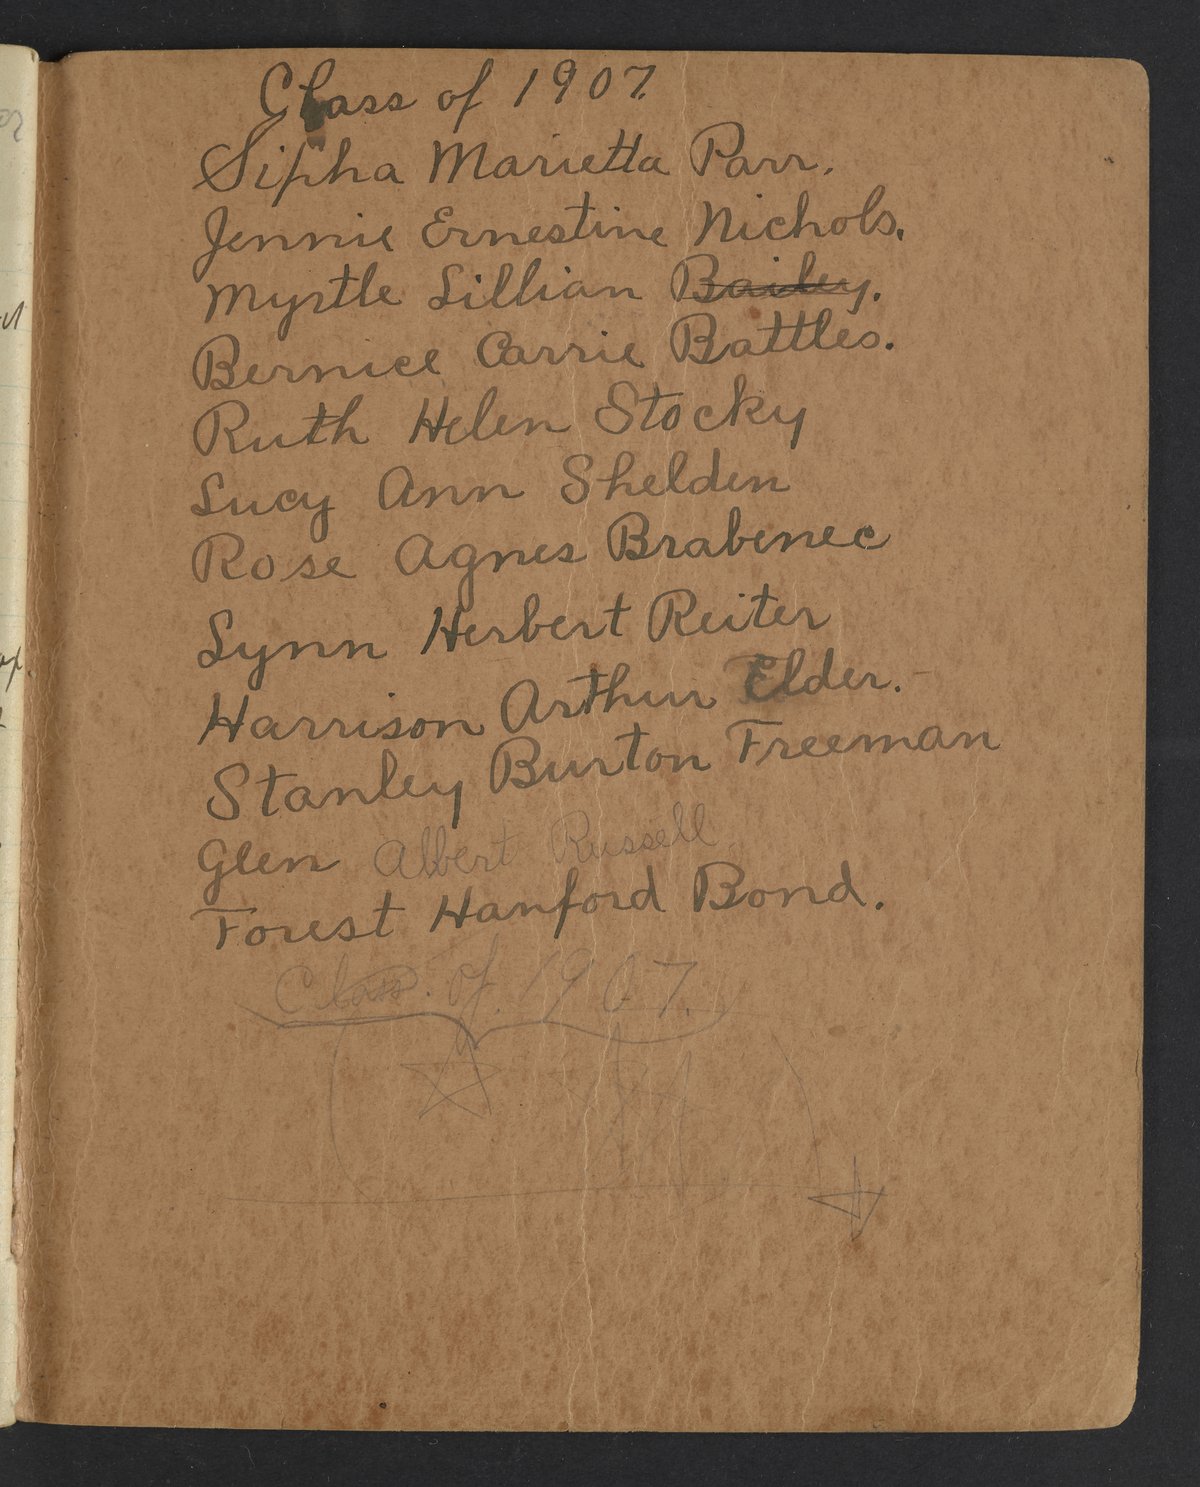 Class of 1907.
Sipha Marietta Parr.
Jennie Ernestine Nichols.
Myrtle Lillian Bailey.
Bernice Carrie Battles.
Ruth Helen Stocky
Lucy Ann Shelden
Rose Agnes Brabenec
Lynn Herbert Reiter
Harrison Arthur Elder.
Stanley Burton Freeman
Glen Albert Russell
Forest Hanford Bond.
Class of 1907.